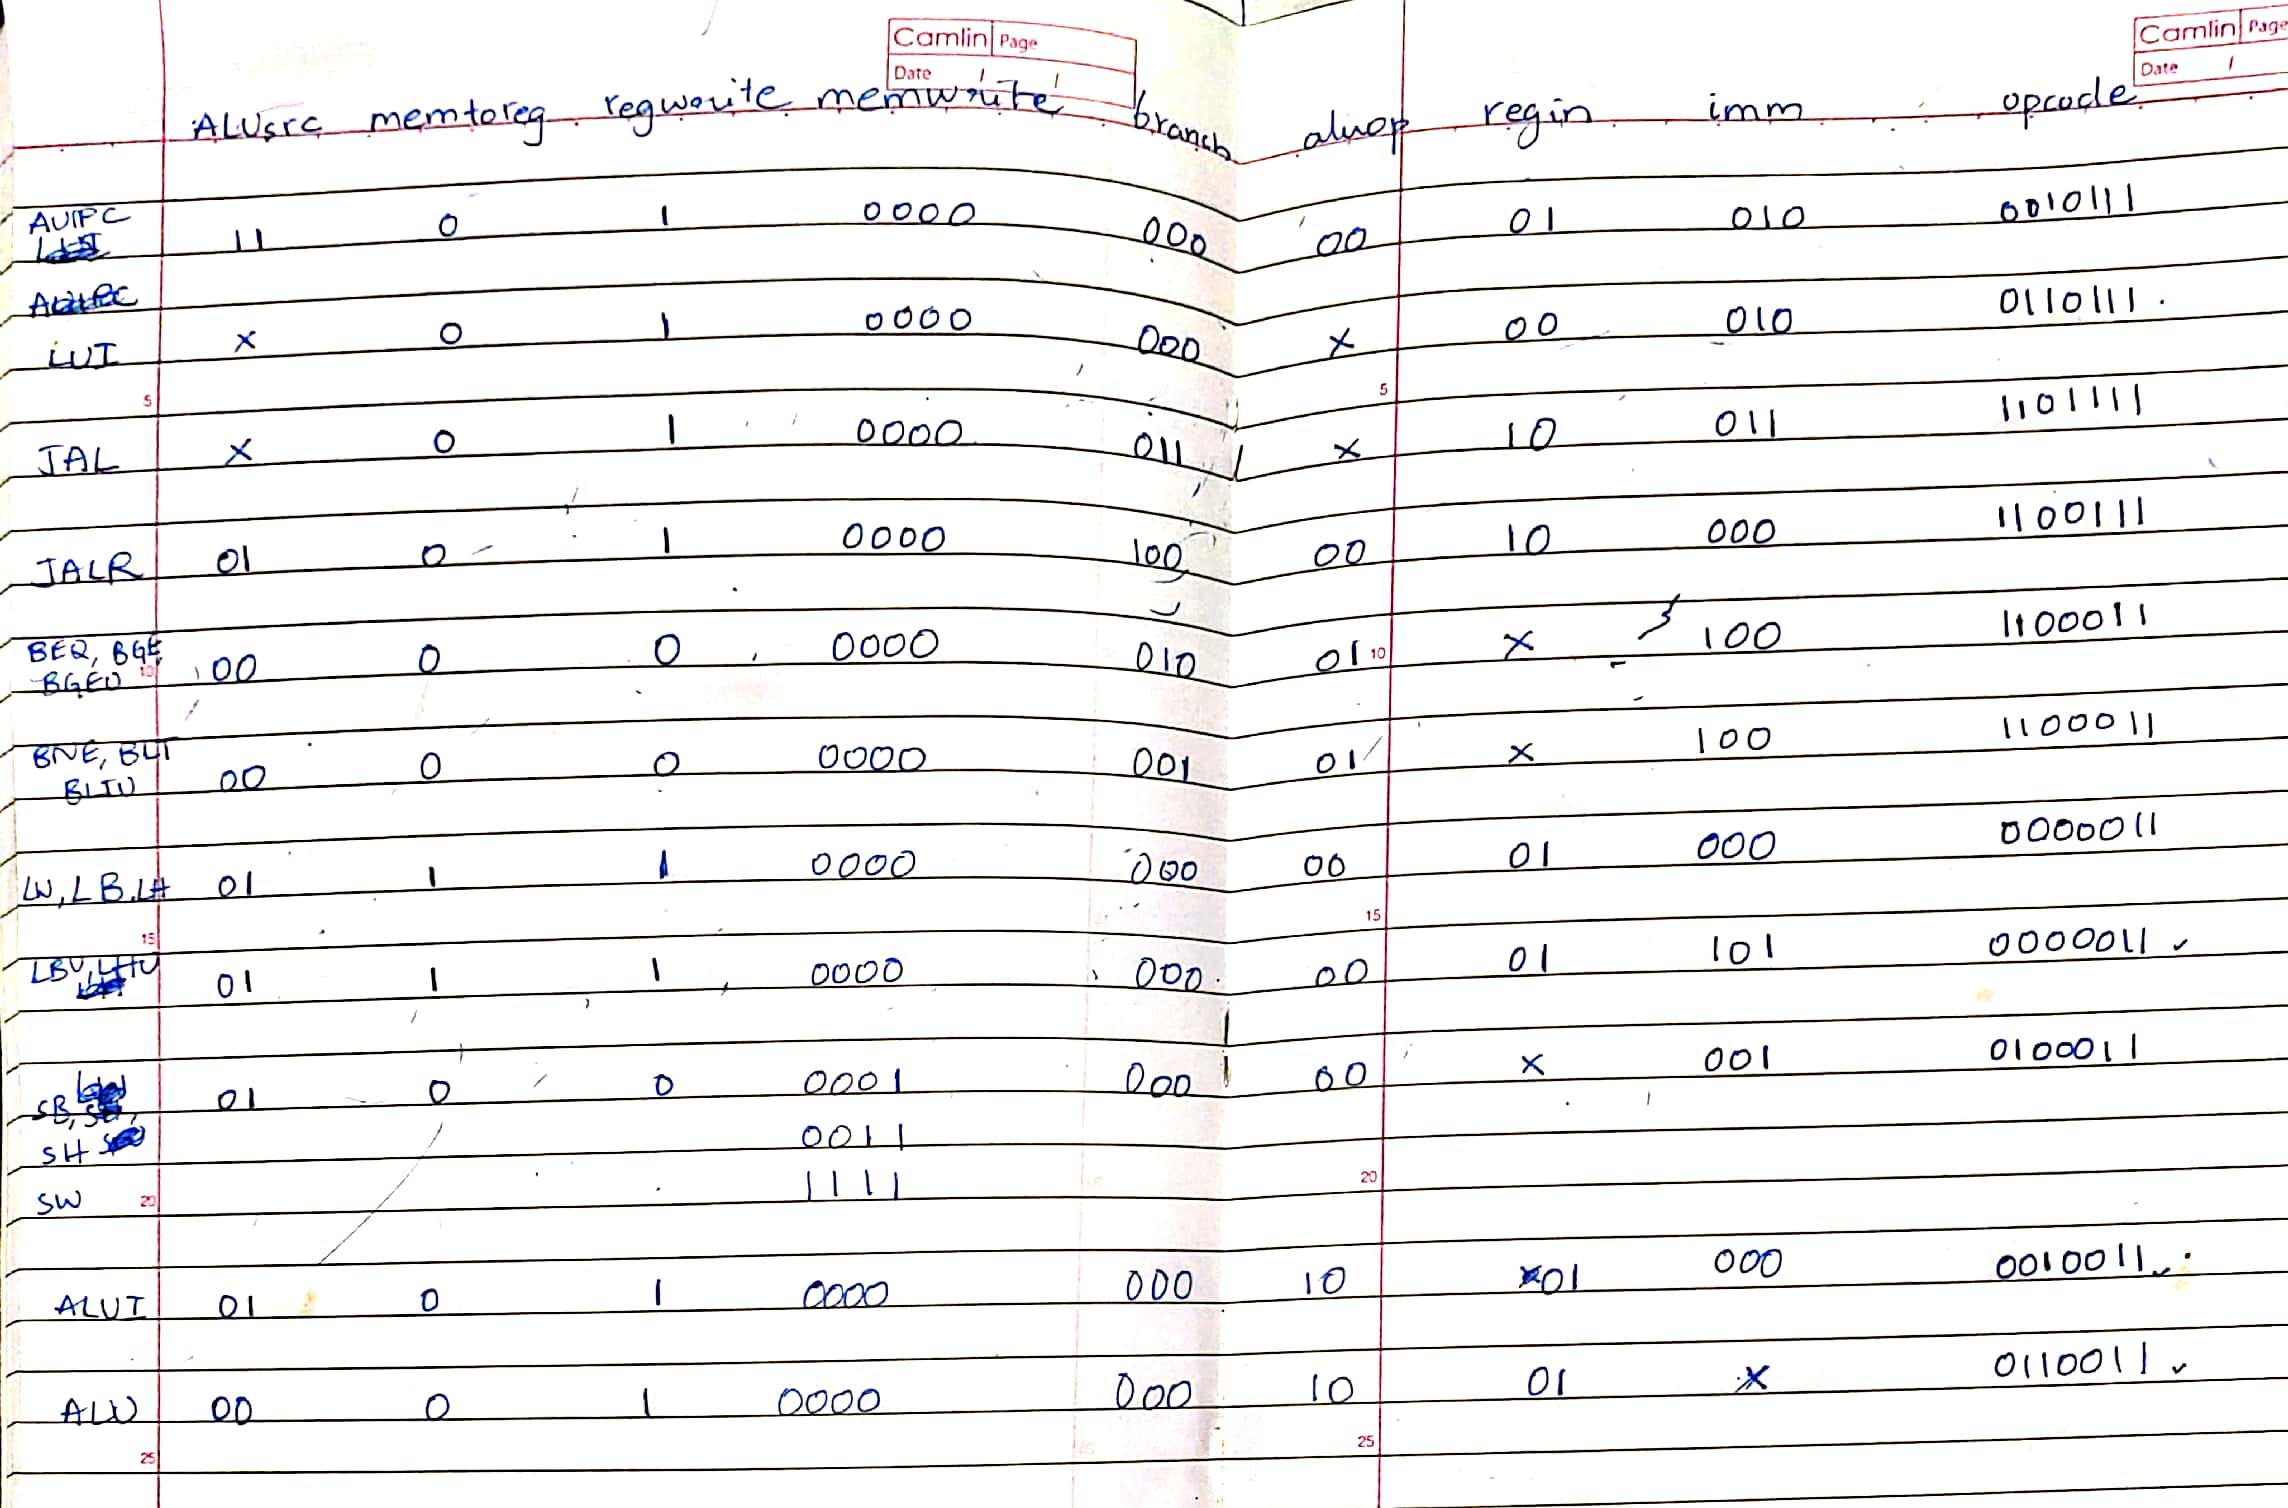 Camlin Page
Date / /
Camlin Page
Date /
ALUsrc memtoreg regwrite memwrite branch aluop regin imm opcode
AUIPC 11 0 1 0000 000 00 01 010 0010111
LUI x 0 1 0000 000 x 00 010 0110111
5 5
JAL x 0 1 0000 011 x 10 011 1101111
JALR 01 0 1 0000 100 00 10 000 1100111
BEQ, BGE, 00 0 0 0000 010 01 10 x 100 1100011
BGEU 10
BNE, BLT 00 0 0 0000 001 01 x 100 1100011
BLTU
LW, LB, LH 01 1 1 0000 000 00 01 000 0000011
15 15
LBU, LHU 01 1 1 0000 000 00 01 101 0000011
SB, 01 0 0 0001 000 00 x 001 0100011
SH 0011
SW 20 1111 20
ALUI 01 0 1 0000 000 10 01 000 0010011
ALU 00 0 1 0000 000 10 01 x 0110011
25 25